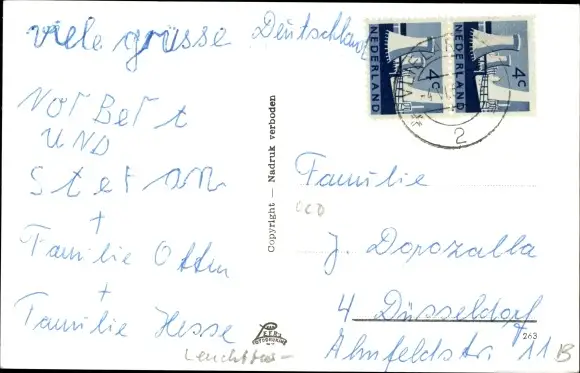 viele grüsse Deutschland
NorBert
UND
Stefan
+
Familie Otten
+
Familie Hesse
Copyright — Nadruk verboden
NEDERLAND
4c
NEDERLAND
4c
2
Familie
J. Dopozalla
4 Düsseldorf
Ahnfeldstr. 11 B
263